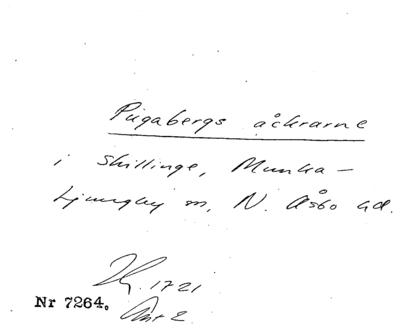 Pugabergs åkrarne
i Skillinge, Munka-
Ljungby sn, N. Åsbo hd.
Hy. 1721
Nr 7264. Akt 2